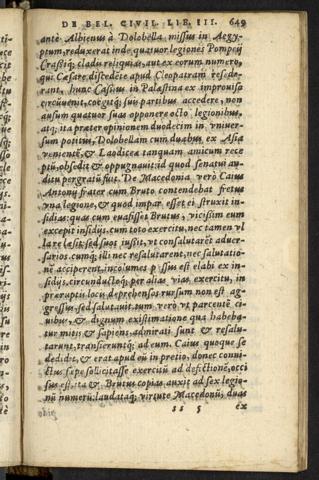 DE BEL. CIVIL. LIB. III. 649
ante Albienus à Dolobella missus in Aegy-
ptum, reduxerat inde quatuor legiones Pompeij
Crassiq; cladis reliquias, aut ex eorum numero,
qui Caesare discedēte apud Cleopatram resede-
rant, hunc Casius in Palaestina ex improuiso
circūuenit, coëgitq; suis partibus accedere, non
ausum quatuor suas opponere octo legionibus,
atq; ita praeter opinionem duodecim in vniuer-
sum potitus, Dolobellam cum duabus ex Asia
venientē, & Laodicea tanquam amicum rece
ptū, obsedit & oppugnauit: id quod senatui au-
ditu pergratū fuit. De Macedonia verò Caius
Antony frater cum Bruto contendebat fretus
vna legione, & quod impar esset ei struxit in-
sidias: quas cum euasisset Brutus, vicissim eum
excepit insidijs cum toto exercitu, nec tamen vl
la re lesit: sed suos iussit, vt consalutarēt aduer-
sarios. cumq; illi nec resalutarent, nec salutatio-
nē acciperent, incolumes passus est elabi ex in-
sidijs. circunductōq; per alias vias exercitu, in
praeruptis locis deprehensos rursum non est ag-
gressus, sed salutauit. tum verò vt parcentē ci-
uibus, & dignum existimatione qua habeba-
tur mitis & sapiens, admirati sunt & resalu-
tarunt, transieruntq; ad eum. Caius quoque se
dedidit, & erat apud eū in pretio, donec conui-
ctus saepe sollicitasse exercitū ad defectionē, occi
sus est. ita & Brutus copias auxit ad sex legio-
nū numerū: laudatāq; virtute Macedonū, duas
ss 5 ex